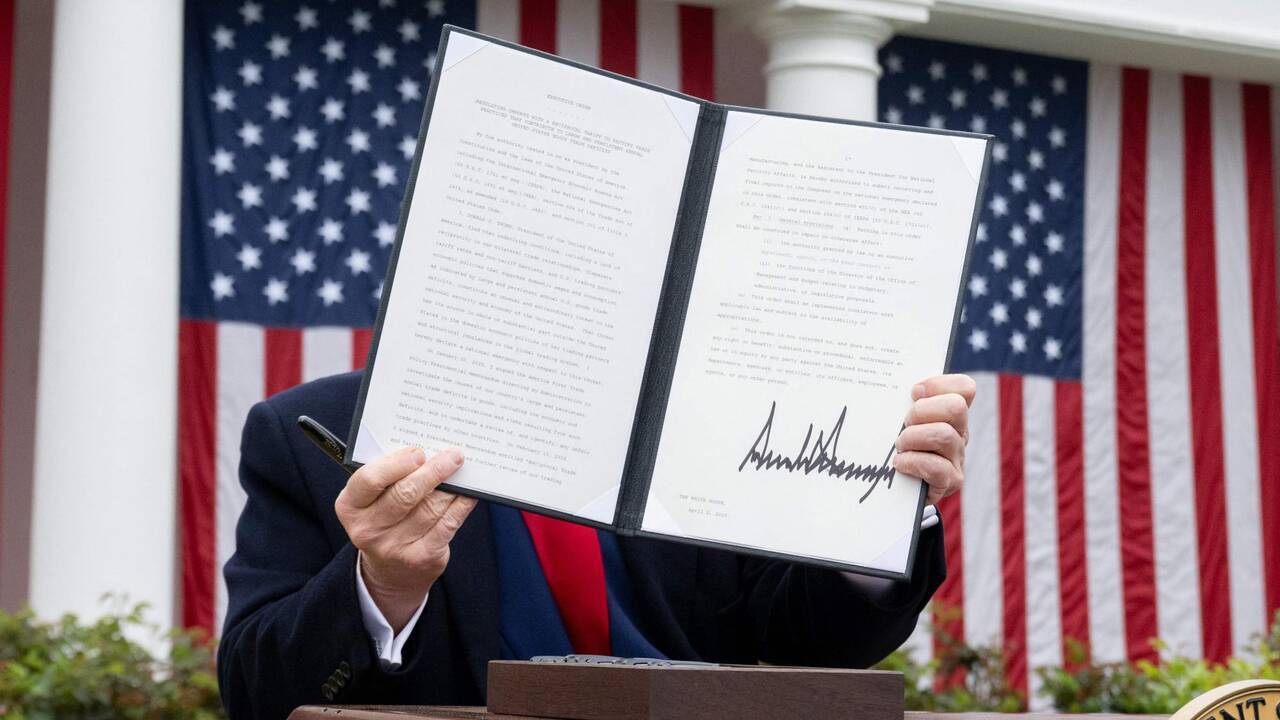 EXECUTIVE ORDER
- - - - - - -
REGULATING IMPORTS WITH A RECIPROCAL TARIFF TO RECTIFY TRADE
PRACTICES THAT CONTRIBUTE TO LARGE AND PERSISTENT ANNUAL
UNITED STATES GOODS TRADE DEFICITS
By the authority vested in me as President by the
Constitution and the laws of the United States of America,
including the International Emergency Economic Powers Act
(50 U.S.C. 1701 et seq.)(IEEPA), the National Emergencies Act
(50 U.S.C. 1601 et seq.)(NEA), section 604 of the Trade Act of
1974, as amended (19 U.S.C. 2483), and section 301 of title 3,
United States Code,
I, DONALD J. TRUMP, President of the United States of
America, find that underlying conditions, including a lack of
reciprocity in our bilateral trade relationships, disparate
tariff rates and non-tariff barriers, and U.S. trading partners'
economic policies that suppress domestic wages and consumption,
as indicated by large and persistent annual U.S. goods trade
deficits, constitute an unusual and extraordinary threat to the
national security and economy of the United States. That threat
has its source in whole or substantial part outside the United
States in the domestic economic policies of key trading partners
and structural imbalances in the global trading system. I
hereby declare a national emergency with respect to this threat.
On January 20, 2025, I signed the America First Trade
Policy Presidential Memorandum directing my Administration to
investigate the causes of our country's large and persistent
annual trade deficits in goods, including the economic and
national security implications and risks resulting from such
deficits, and to undertake a review of, and identify, any unfair
trade practices by other countries. On February 13, 2025,
I signed a Presidential Memorandum entitled "Reciprocal Trade
and Tariffs," further review of our trading
17
Manufacturing, and the Assistant to the President for National
Security Affairs, is hereby authorized to submit recurring and
final reports to the Congress on the national emergency declared
in this order, consistent with section 401(c) of the NEA (50
U.S.C. 1641(c)) and section 204(c) of IEEPA (50 U.S.C. 1703(c)).
General Provisions. (a) Nothing in this order
shall be construed to impair or otherwise affect:
(i) the authority granted by law to an executive
department, agency, or the head thereof; or
(ii) the functions of the Director of the Office of
Management and Budget relating to budgetary,
administrative, or legislative proposals.
(b) This order shall be implemented consistent with
applicable law and subject to the availability of
appropriations.
(c) This order is not intended to, and does not, create
any right or benefit, substantive or procedural, enforceable at
law or in equity by any party against the United States, its
departments, agencies, or entities, its officers, employees, or
agents, or any other person.
THE WHITE HOUSE,
April 2, 2025